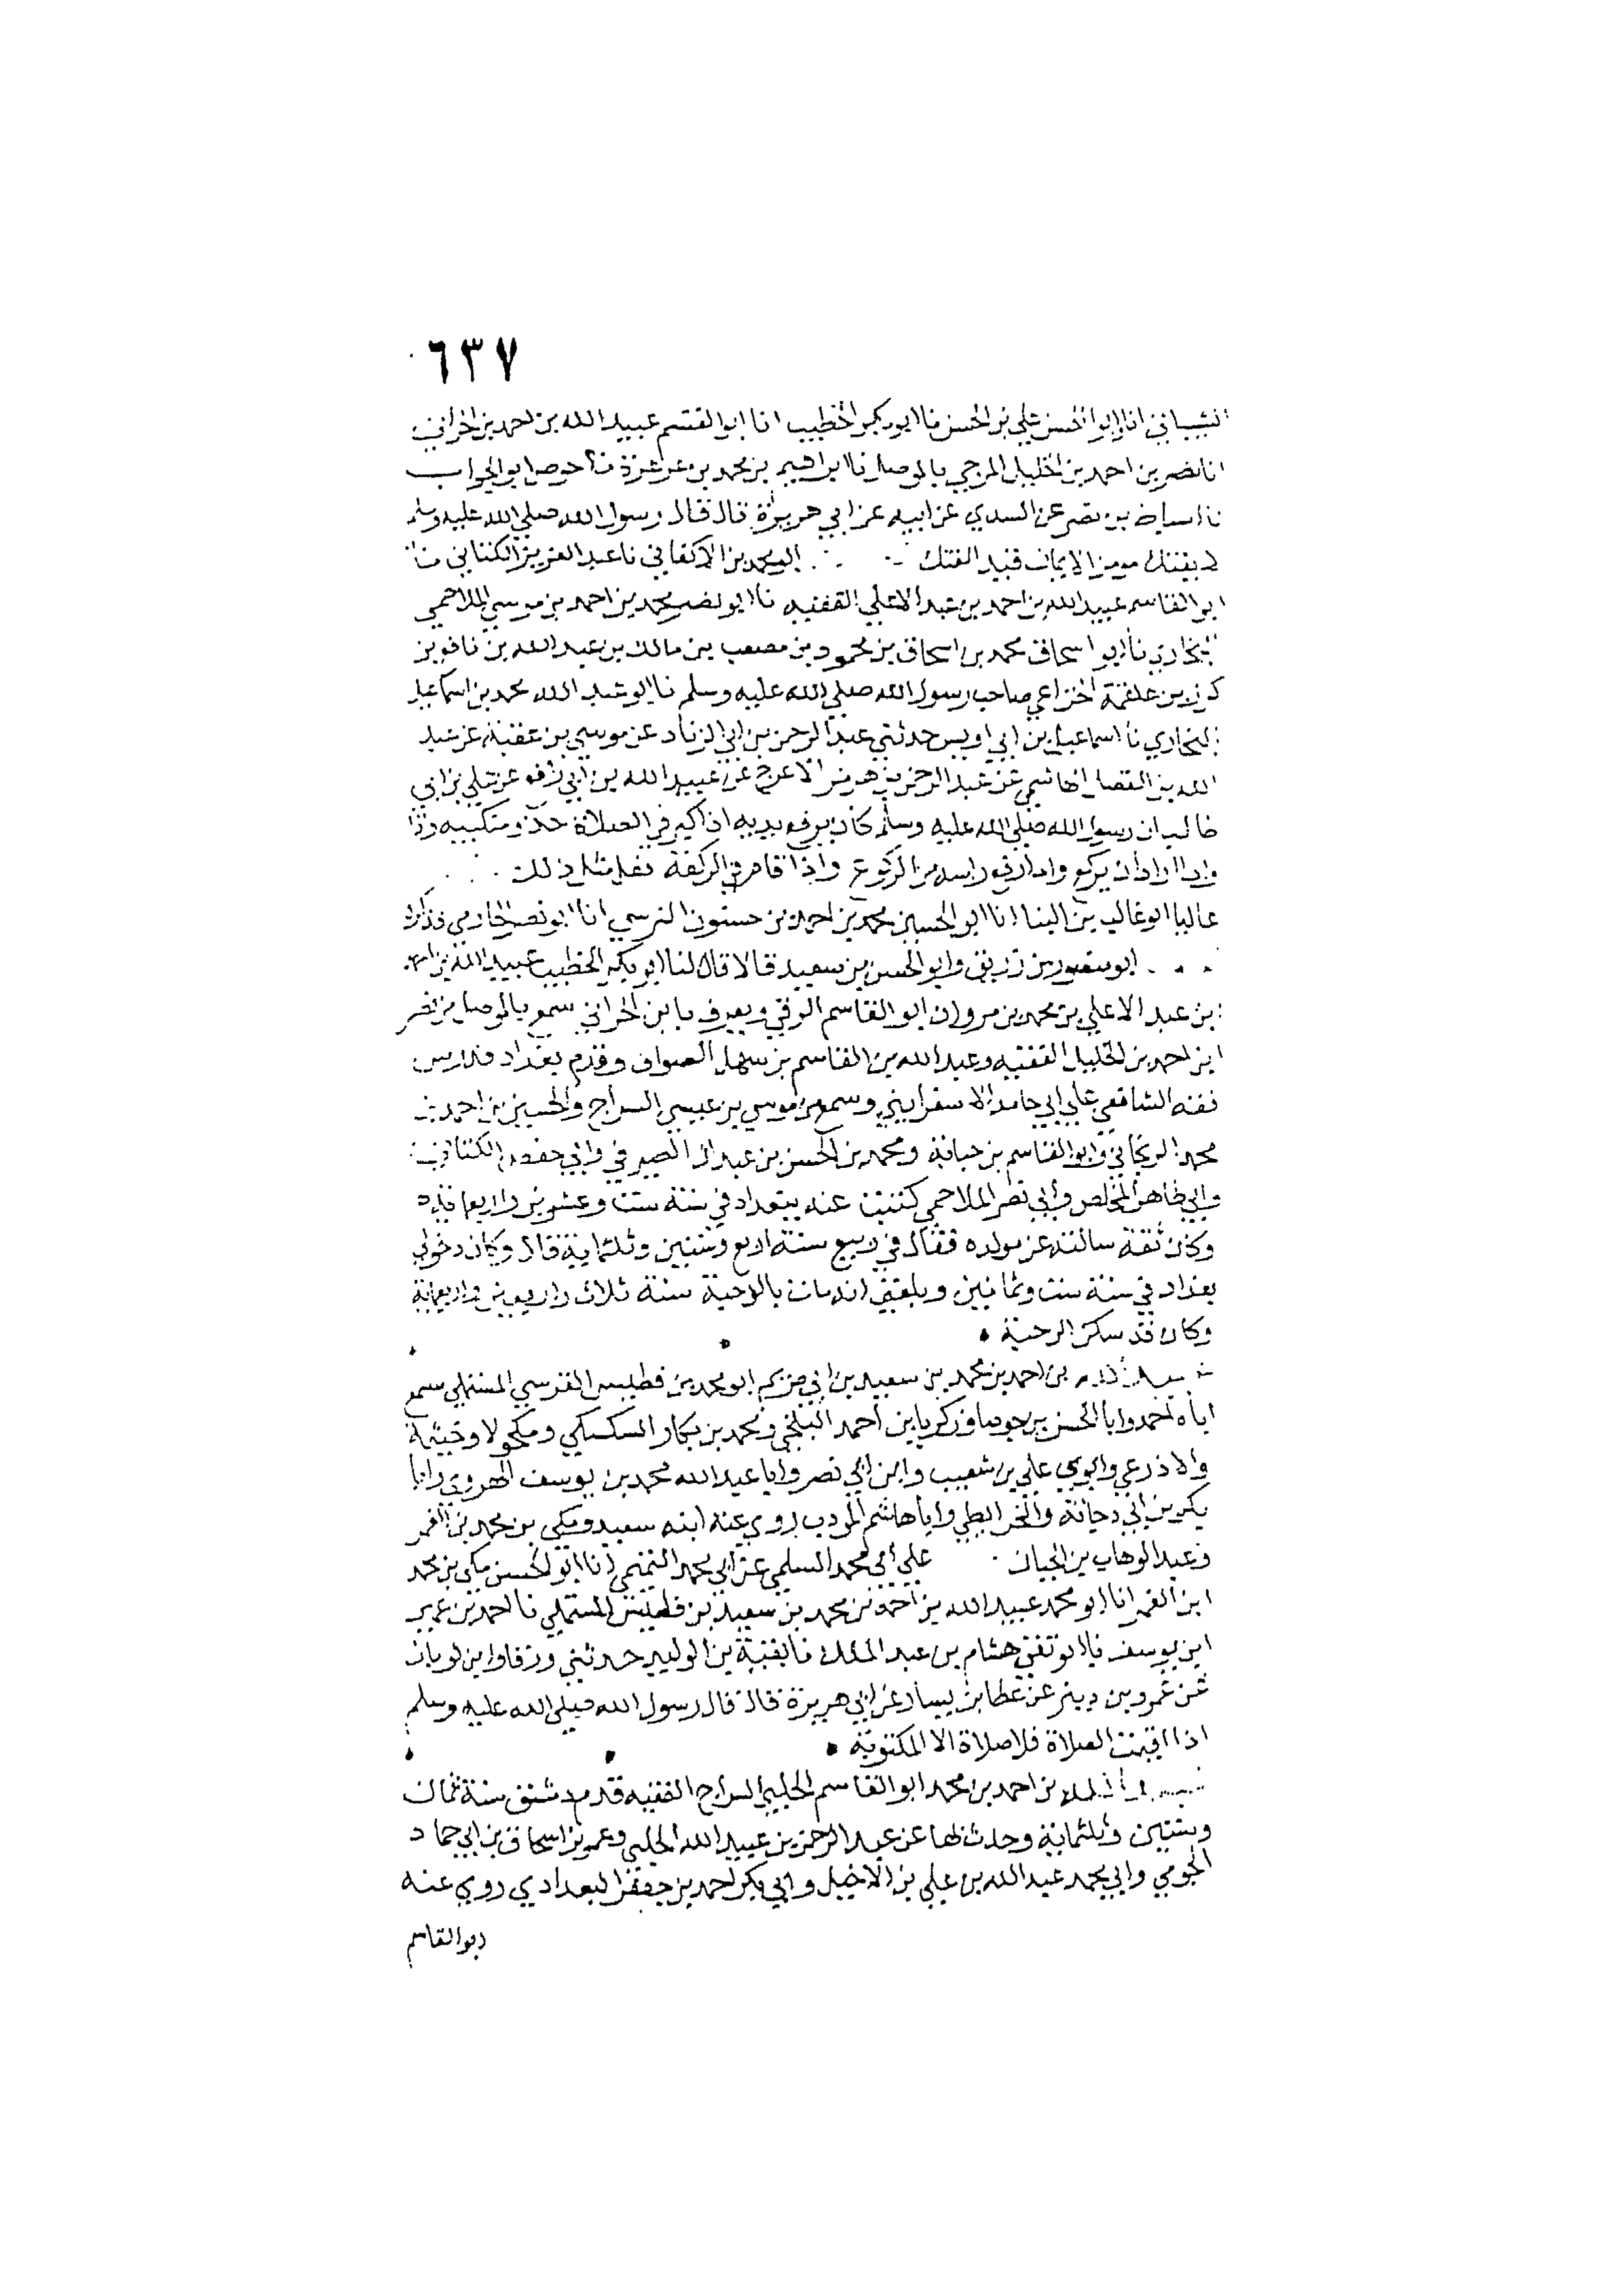 ٦٣٧
الشيباني انا ابو الحسن علي بن الحسن نا ابو بكر الخطيب انا ابو القسم عبيد الله بن احمد بن الحراني
انا نصر بن احمد بن الخليل المرجي بالموصل نا ابراهيم بن محمد بن عرعرة نا احوص ابو الجواب
نا اسباط بن نصر عن السدي عن ابيه عن ابي هريرة قال قال رسول الله صلى الله عليه وسلم
لا يفتك مومن الايمان قيد الفتك ابو محمد بن الاكفاني نا عبد العزيز الكتاني نا
ابو القاسم عبيد الله بن احمد بن عبد الاعلي الفقيه نا ابو نصر محمد بن احمد بن موسي الملاحمي
البخاري نا ابو اسحاق محمد بن اسحاق بن محمود بن مصعب بن مالك بن عبد الله بن نافع بن
كرز بن علقمة الخزاعي صاحب رسول الله صلى الله عليه وسلم نا ابو عبد الله محمد بن اسماعيل
البخاري نا اسماعيل بن ابي اويس حدثني عبد الرحمن بن ابي الزناد عن موسي بن عقبة عن عبد
الله بن الفضل الهاشمي عن عبد الرحمن بن هرمز الاعرج عن عبيد الله بن ابي رافع عن علي بن ابي
طالب ان رسول الله صلى الله عليه وسلم كان يرفع يديه اذا كبر في الصلاة حذو منكبيه واذا
واذا اراد ان يركع واذا رفع راسه من الركوع واذا قام من الركعة فعل مثل ذلك
عاليا ابو غالب بن البنا انا ابو الحسين محمد بن احمد بن حسنون النرسي انا ابو نصر الملاحمي فذكره
ابو منصور بن زريق وابو الحسن بن سعيد قالا قال لنا ابو بكر الخطيب عبيد الله بن احمد
بن عبد الاعلي بن محمد بن مروان ابو القاسم الرقي ويعرف بابن الحراني سمع بالموصل من نصر
ابن احمد بن الخليل الفقيه وعبد الله بن القاسم بن سهل الصواف وقدم بغداد فدرس
فقه الشافعي علي ابي حامد الاسفرايني وسمع من موسي بن عيسي السراج والحسين بن احمد بن
محمد الريحاني وابو القاسم بن حبابة ومحمد بن الحسن بن عبدان الصيرفي وابي حفص الكتاني
وابي طاهر المخلص وابي نصر الملاحمي كتبت عنه ببغداد في سنة ست وعشرين واربعماية
وكان ثقة سالته عن مولده فقال في ربيع سنة اربع وستين وثلثماية قال وكان دخولي
بغداد في سنة ست وثمانين وبلغني انه مات بالرحبة سنة ثلاث واربعين واربعماية
وكان قد سكن الرحبة
عبيد الله بن احمد بن محمد بن سعيد بن ابي مريم ابو محمد بن فطيس القرشي المستملي سمع
اباه احمد وابا الحسن بن جوصا وزكريا بن احمد البلخي ومحمد بن بكار السكسكي ومكحولا وخيثمة
والاذرعي وابوي علي بن شعيب وابن ابي نصر وابا عبد الله محمد بن يوسف الهروي وابا
بكر بن ابي دجانة والخرايطي وابا هاشم المودب روي عنه ابنه سعيد ومكي بن محمد بن الغمر
وعبد الوهاب بن الجبان علي ابي محمد السلمي عن ابي محمد التميمي انا ابو الحسن مكي بن محمد
ابن الغمر انا ابو محمد عبيد الله بن احمد بن محمد بن سعيد بن فطيس المستملي نا احمد بن عمير
ابن يوسف نا ابو تقي هشام بن عبد الملك نا بقية بن الوليد حدثني ورقا وابن ثوبان
عن عمرو بن دينر عن عطا بن يسار عن ابي هريرة قال قال رسول الله صلى الله عليه وسلم
اذا اقيمت الصلاة فلا صلاة الا المكتوبة
عبيد الله بن احمد بن محمد ابو القاسم الحلبي السراج الفقيه قدم دمشق سنة ثمان
وستين وثلثماية وحدث بها عن عبد الرحمن بن عبيد الله الحلبي وعمر بن اسحاق بن ابي حماد
الجومي وابي محمد عبد الله بن علي بن الاخيل وابي بكر احمد بن جعفر البغدادي روي عنه
ابو القاسم